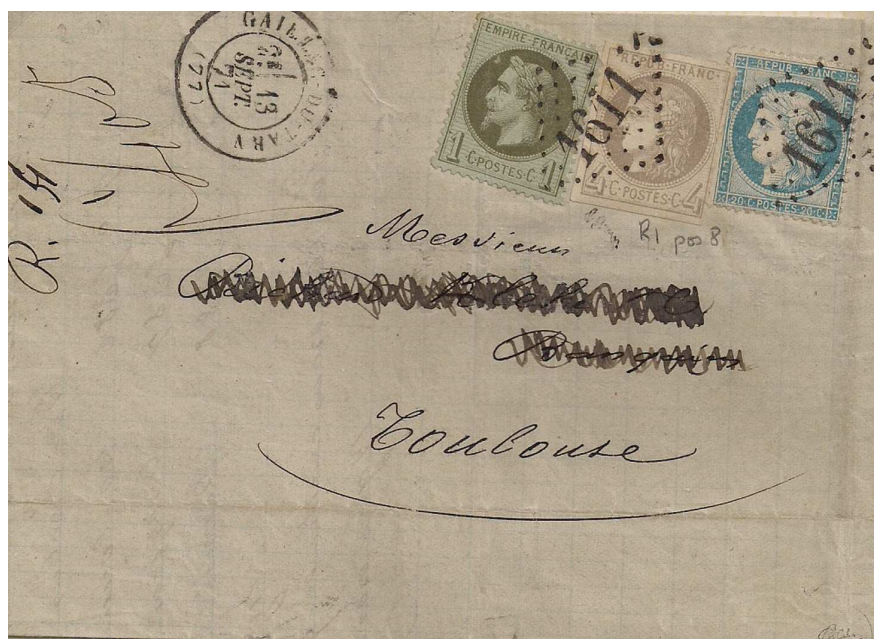 GAILLAC-DU-TARN
2E
13
SEPT.
71
(77)
EMPIRE FRANÇAIS
1 C·POSTES·C 1
REPUB·FRANC·
4 C·POSTES·C 4
REPUB·FRANC·
20 C·POSTES·20 C
1611
1611
R1 pos 8
R. 19
Messieurs
Toulouse